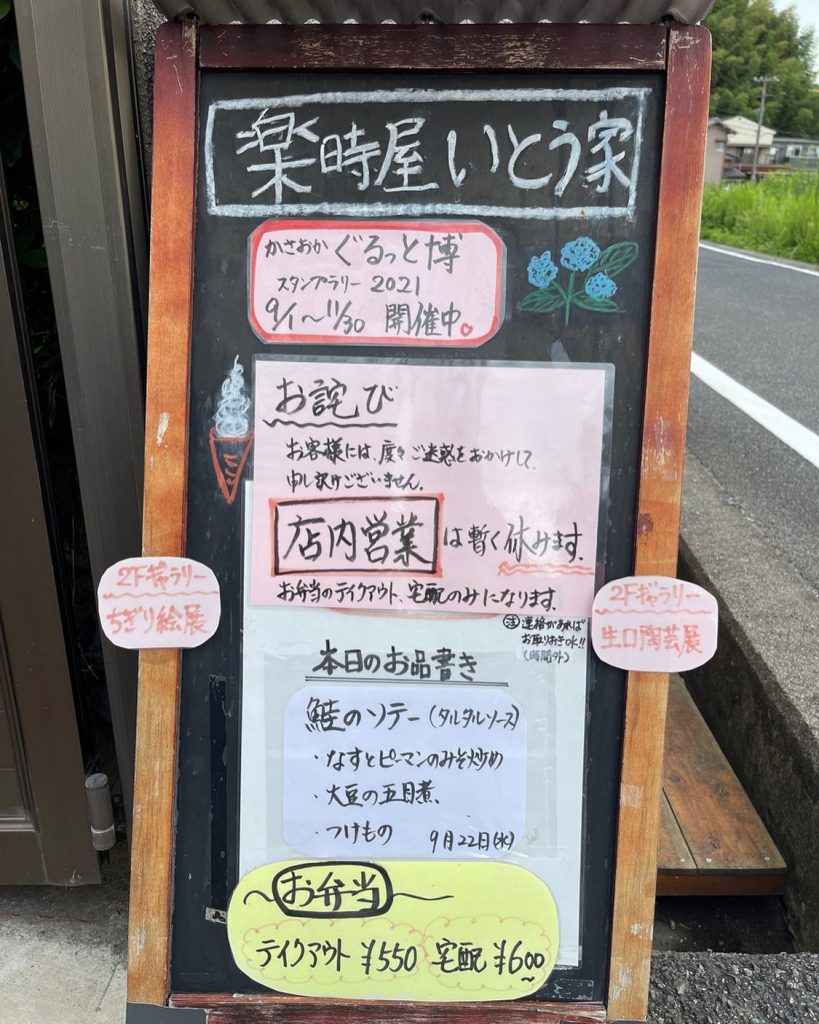 楽時屋いとう家
かさおか ぐるっと博
スタンプラリー 2021
9/1〜11/30 開催中
お詫び
お客様には、度々ご迷惑をおかけして、
申し訳けございません。
店内営業は暫く休みます。
お弁当のテイクアウト、宅配のみになります。
注 連絡があれば
お取りおきOK!!
(時間外)
2Fギャラリー
ちぎり絵展
2Fギャラリー
生口陶芸展
本日のお品書き
鮭のソテー(タルタルソース)
・なすとピーマンのみそ炒め
・大豆の五目煮、
・つけもの 9月22日(水)
お弁当
テイクアウト ¥550 宅配 ¥600